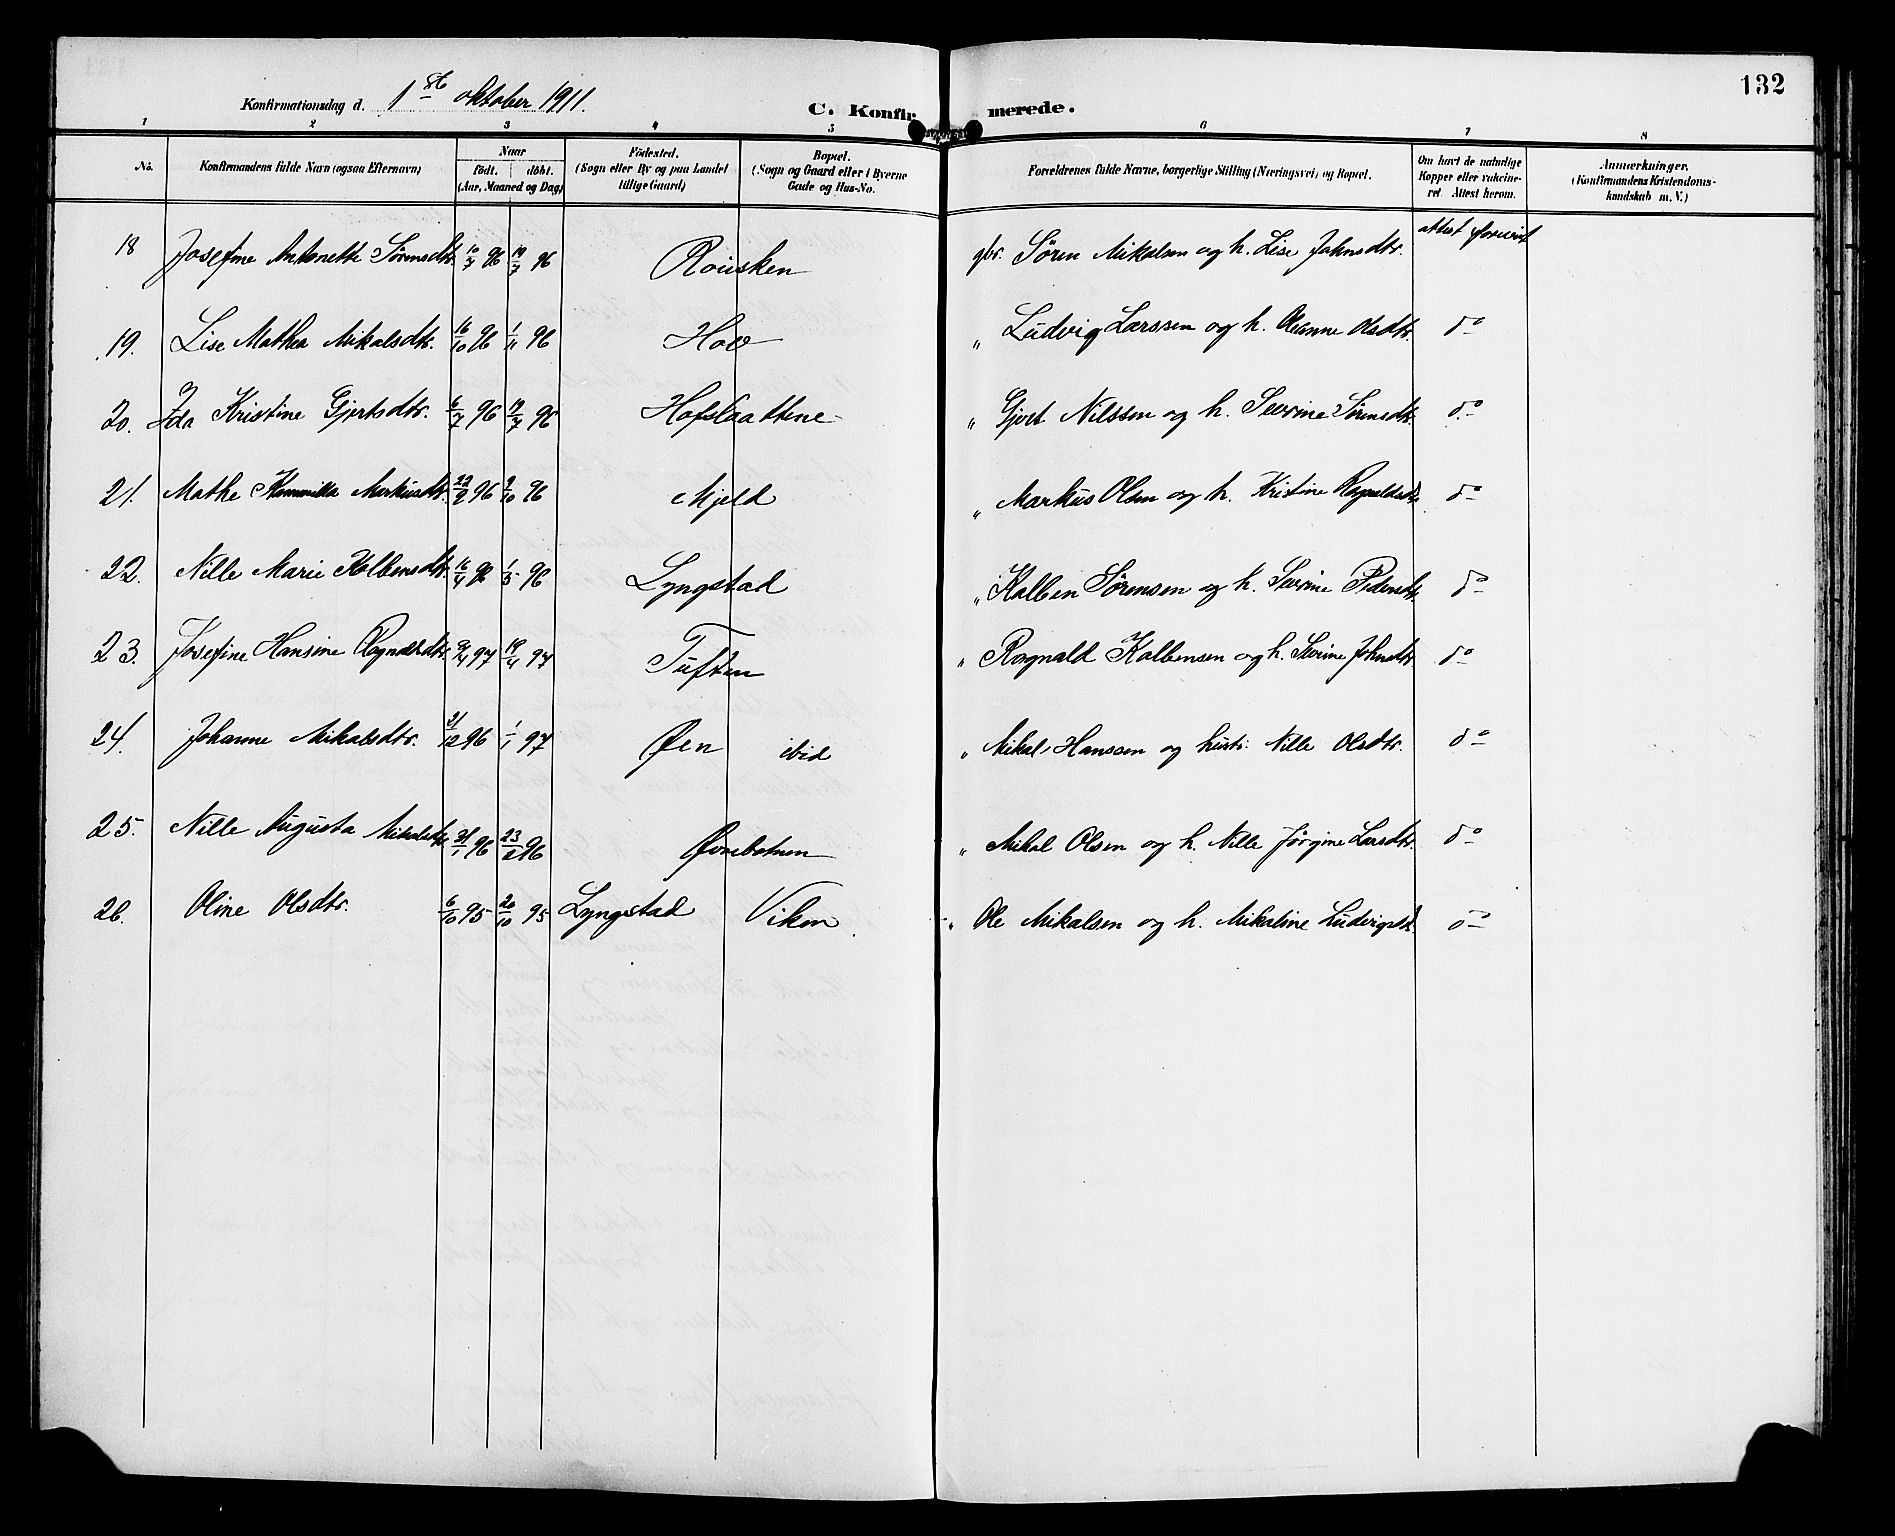 132
Konfirmationsdag d. 1ste oktober 1911. C. Konfirmerede.
1 2 3 4 5 6 7 8
No. Konfirmandens fulde Navn (ogsaa Efternavn) Naar födt. döbt. (Aar, Maaned og Dag) Födested. (Sogn eller By og paa Landet tillige Gaard) Bopæl. (Sogn og Gaard eller i Byerne Gade og Hus-No. Forældrenes fulde Navne, borgerlige Stilling (Næringsvei) og Bopæl. Om havt de naturlige Kopper eller vakcineret Attest herom. Anmærkninger, (Konfirmandens Kristendomskundskab m. V.)
18 Josefine Antonette Sörensdtr. 10/7 96 19/7 96 Rousken gbr. Sören Mikalsen og h. Lise Johnsdtr. attest forevist
19. Lise Mathea Mikalsdtr. 16/10 96 1/11 96 Hov " Ludvig Larssen og h. Oleanne Olsdtr. do
20. Ida Kristine Gjertsdtr. 6/7 96 19/7 96 Hofslaattene " Gjert Nilssen og h. Severine Sörensdtr. do
21. Mathe Markusdtr. 22/9 96 96 Mjeld " Markus Olsen og h. Kristine Ragnaldsdtr. do
22. Nille Marie Kolbensdtr. 16/4 96 1/5 96 Lyngstad " Kolben Sørensen og h. Severine Pedersdtr. do
23. Josefine Hansine Ragnaldsdtr. 9/4 97 19/4 97 Tuften " Ragnald Kolbensen og h. Severine Johnsdtr. do
24. Johanne Mikalsdtr. 21/12 96 1/1 97 Øen ibid " Mikal Hanssen og hustr. Nille Olsdtr. do
25. Nille Augusta Mikalsdtr. 31/1 96 23/2 96 Øvrebotnen " Mikal Olsen og h. Nille Jørgine Larsdtr. do
26. Oline Olsdtr. 6/10 95 20/10 95 Lyngstad Viken. " Ole Mikalsen og h. Mikaline Ludvigsdtr. do